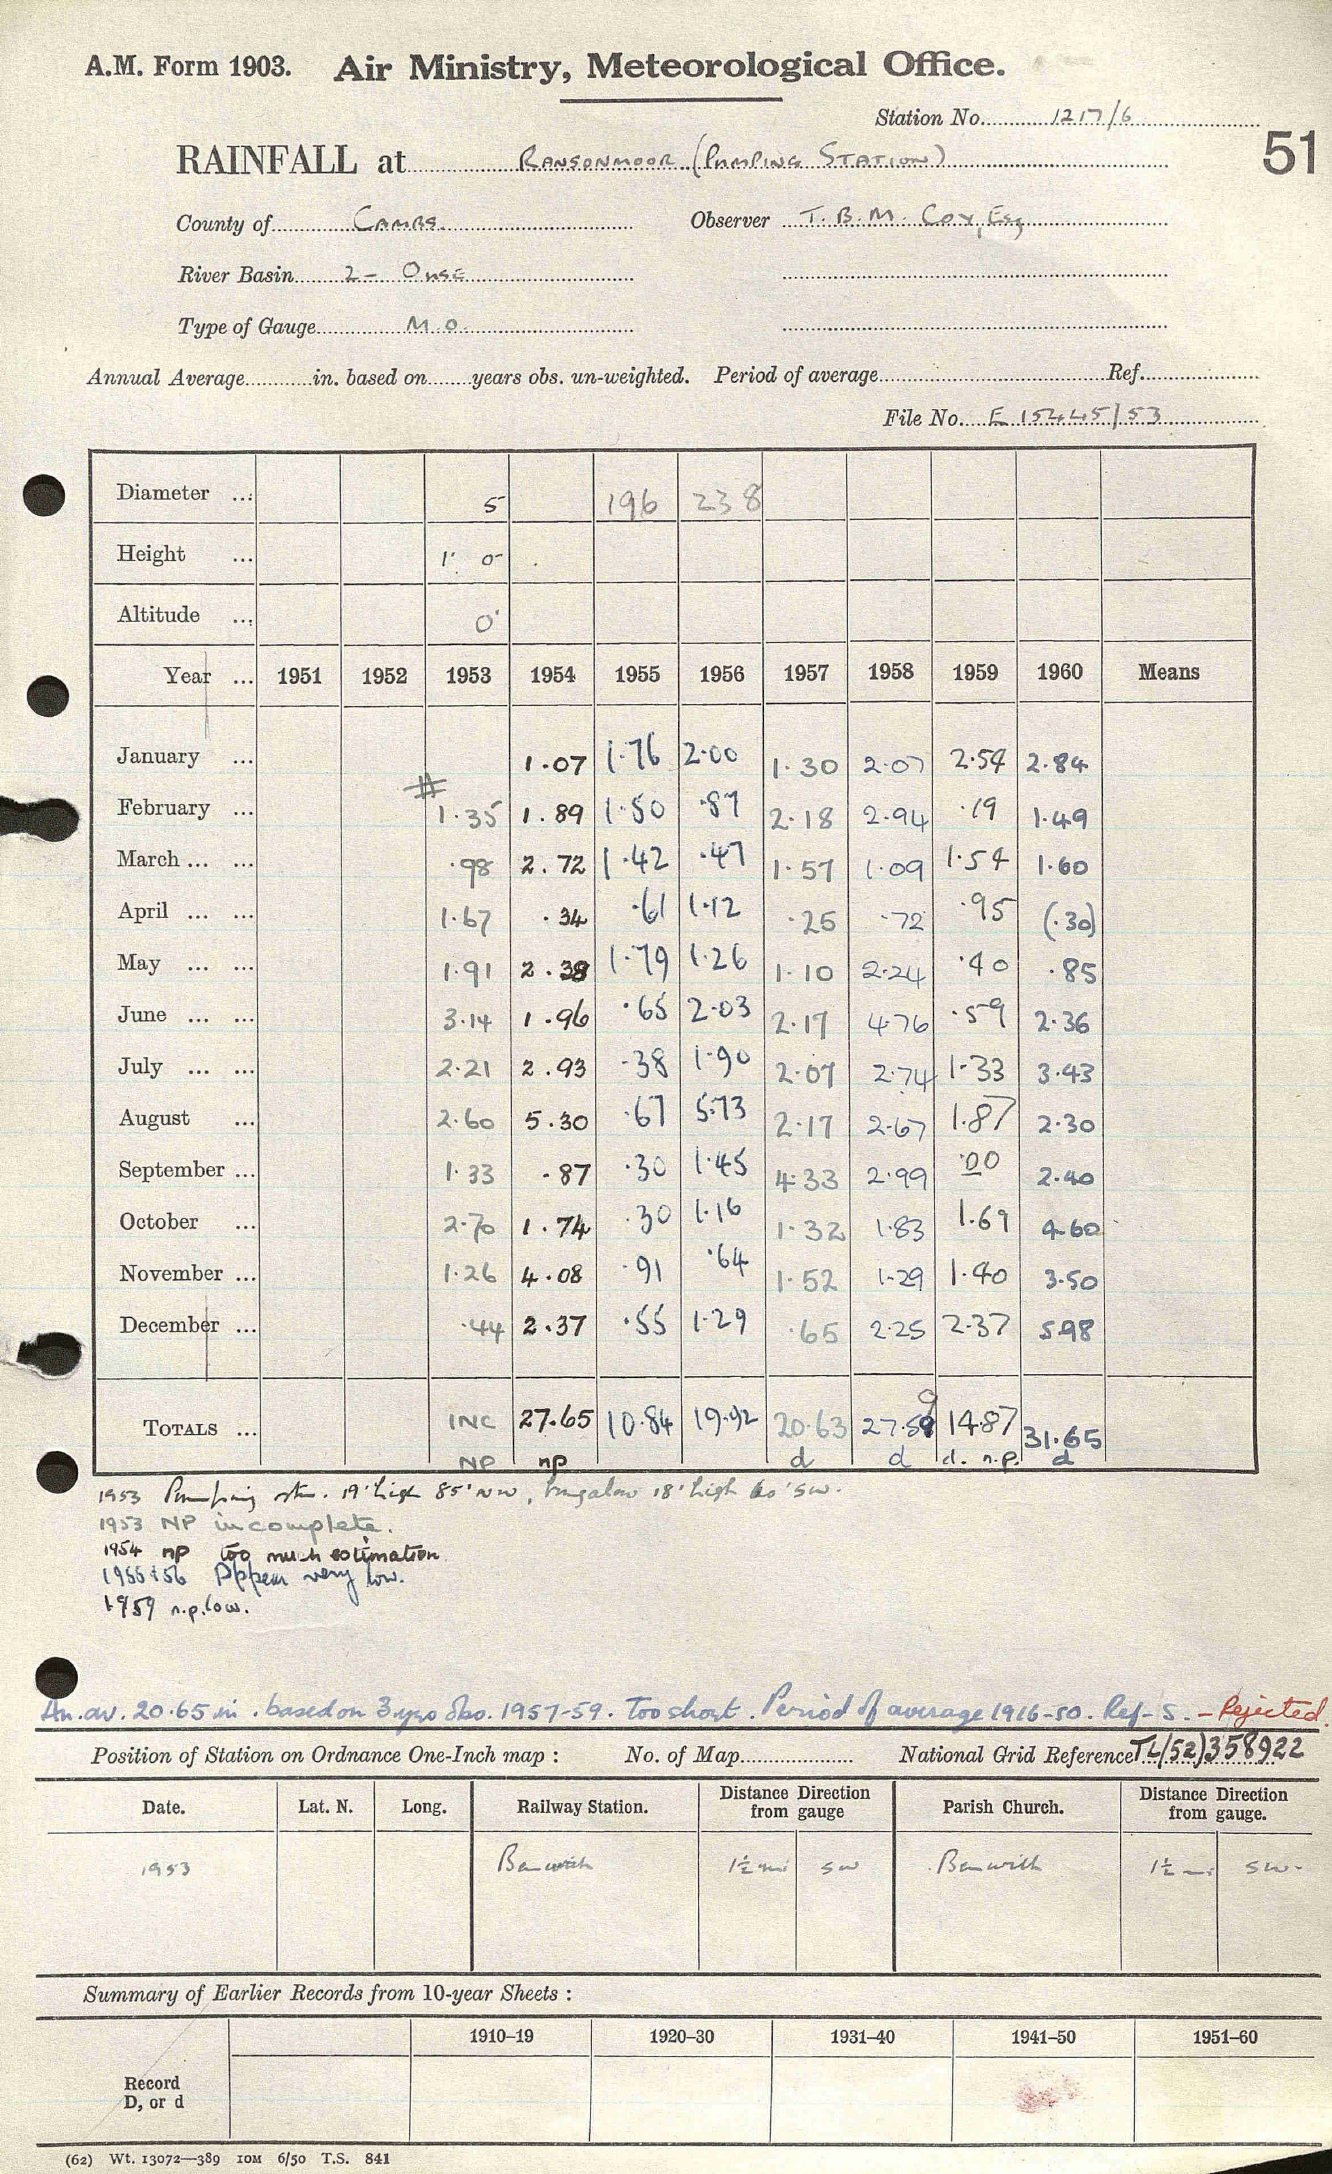 A.M. Form 1903. Air Ministry, Meteorological Office.
Station No. 1217/6
51
RAINFALL at RANSONMOOR (PUMPING STATION)
County of CAMBS. Observer T. B. M. Cox, Esq
River Basin 2 - OUSE
Type of Gauge M.O.
Annual Average in. based on years obs. un-weighted. Period of average Ref.
File No. E 15445/53
Diameter ... 5 196 238
Height ... 1' 0"
Altitude ... 0'
Year ... 1951 1952 1953 1954 1955 1956 1957 1958 1959 1960 Means
January ... 1.07 1.76 2.00 1.30 2.07 2.54 2.84
February ... # 1.35 1.89 1.50 .87 2.18 2.94 .19 1.49
March ... ... .98 2.72 1.42 .47 1.57 1.09 1.54 1.60
April ... ... 1.67 .34 .61 1.12 .25 .72 .95 (.30)
May ... ... 1.91 2.38 1.79 1.26 1.10 2.24 .40 .85
June ... ... 3.14 1.96 .65 2.03 2.17 4.76 .59 2.36
July ... ... 2.21 2.93 .38 1.90 2.07 2.74 1.33 3.43
August ... 2.60 5.30 .67 5.73 2.17 2.67 1.87 2.30
September ... 1.33 .87 .30 1.45 4.33 2.99 .00 2.40
October ... 2.70 1.74 .30 1.16 1.32 1.83 1.69 4.60
November ... 1.26 4.08 .91 .64 1.52 1.29 1.40 3.50
December ... .44 2.37 .55 1.29 .65 2.25 2.37 5.98
TOTALS ... INC 27.65 10.84 19.92 20.63 27.59 14.87 31.65
NP np d d d. n.p. d
1953 Pumping stn. 19' high 85' NW, bungalow 18' high 60' SW.
1953 NP incomplete.
1954 np too much estimation
1955 & 56 Appear very low.
1959 n.p. low.
An. av. 20.65 in. based on 3 yrs obs. 1957-59. Too short. Period of average 1916-50. Ref- S. - Rejected.
Position of Station on Ordnance One-Inch map : No. of Map National Grid Reference TL(52)358922
Date. Lat. N. Long. Railway Station. Distance Direction from gauge Parish Church. Distance Direction from gauge.
1953 Benwick 1½ mi SW Benwick 1½ mi SW.
Summary of Earlier Records from 10-year Sheets :
1910–19 1920–30 1931–40 1941–50 1951–60
Record
D, or d
(62) Wt. 13072—389 10M 6/50 T.S. 841